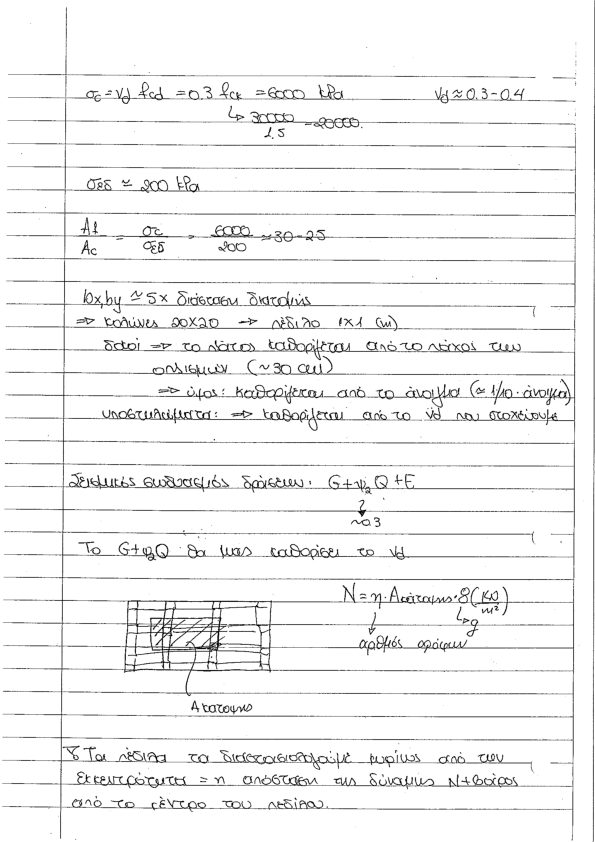 σc = νd fcd = 0.3 fck = 6000 kPa νd ≈ 0.3-0.4
↳ 30000/1.5 = 20000.
σεδ ≃ 200 kPa
Af/Ac = σc/σεδ = 6000/200 ≈ 30-25
bx, by ≃ 5x διάσταση διατομής
⇒ κολώνες 20x20 → πέδιλο 1x1 (m)
δοκοί ⇒ το πλάτος καθορίζεται από το πάχος των
οπλισμών (~30 cm)
⇒ ύψος: καθορίζεται από το άνοιγμα (≈ 1/10 · άνοιγμα)
υποστυλώματα: ⇒ καθορίζεται από το νd που στοχεύουμε
Σεισμικός συνδυασμός δράσεων: G+ψ2Q+E
~0.3
Το G+ψ2Q θα μας καθορίσει το νd
N = η · Aκάτοψης · 8 (kN/m²)
↳ g
αριθμός ορόφων
Aκάτοψης
Τα πέδιλα τα διαστασιολογούμε κυρίως από την
εκκεντρότητα = η απόσταση της δύναμης N+βάρος
από το κέντρο του πεδίλου.